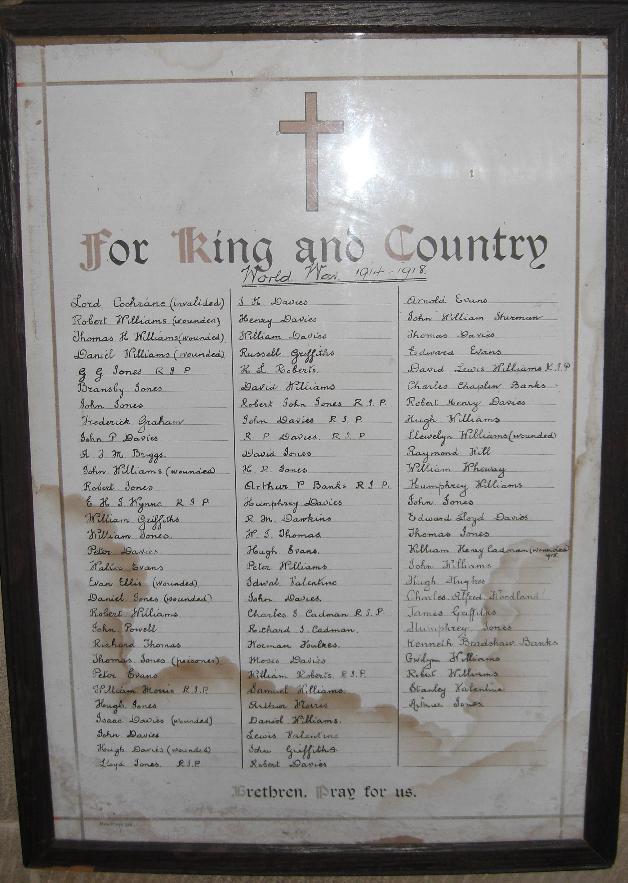 For King and Country
World War 1914-1918
Lord Cochrane (invalided)
Robert Williams (wounded)
Thomas H Williams (wounded)
Daniel Williams (wounded)
G G Jones R I P
Bransby Jones
John Jones
Frederick Graham
John P Davies
A J M Briggs
John Williams (wounded)
Robert Jones
E H J Wynne R I P
William Griffiths
William Jones
Peter Davies
Walter Evans
Evan Ellis (wounded)
Daniel Jones (wounded)
Robert Williams
John Powell
Richard Thomas
Thomas Jones (prisoner)
Peter Evans
William Morris R.I.P.
Hugh Jones
Isaac Davies (wounded)
John Davies
Hugh Davies (wounded)
Lloyd Jones R.I.P
Davies
Henry Davies
William Davies
Russell Griffiths
H L Roberts.
David Williams
Robert John Jones R.I.P.
John Davies R.I.P.
R P Davies. R.I.P.
David Jones
Jones
Arthur P Banks R.I.P.
Humphrey Davies
R M. Dawkins
Thomas
Hugh Evans.
Peter Williams
Idwal Valentine
John Davies
Charles S Cadman R.I.P
Richard J Cadman.
Norman Foulkes.
Moses Davies
William Roberts. R.I.P.
Samuel Williams.
Arthur Morris
Daniel Williams.
Lewis Valentine
John Griffiths
Robert Davies
Arnold Evans
John William Sherman
Thomas Davies
Edward Evans
David Lewis Williams R.I.P
Charles Chaplin Banks
Robert Henry Davies
Hugh Williams
Llewelyn Williams (wounded)
Raymond Hill
William Wheway
Humphrey Williams
John Jones
Edward Lloyd Davies
Thomas Jones
William Henry Cadman (wounded
John Williams
Hugh Hughes
Charles Alfred Woodland
James Griffiths
Humphrey Jones
Kenneth Bradshaw Banks
Gwilym Williams
Robert Williams
Stanley Valentine
Arthur Jones
Brethren, Pray for us.